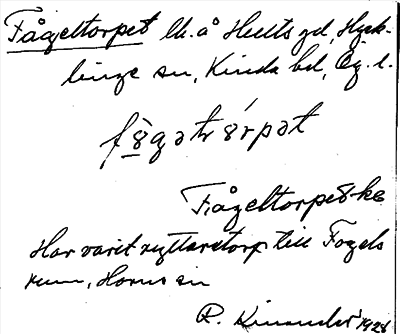 Fågeltorpet lh. å Hults gd, Hyck-
linge sn, Kinda hd, Ög. l.
fògətórpət
Fågeltorpet
Har varit ryttaretorp till Fogels
rum, Horns sn
R. Kinander 1928